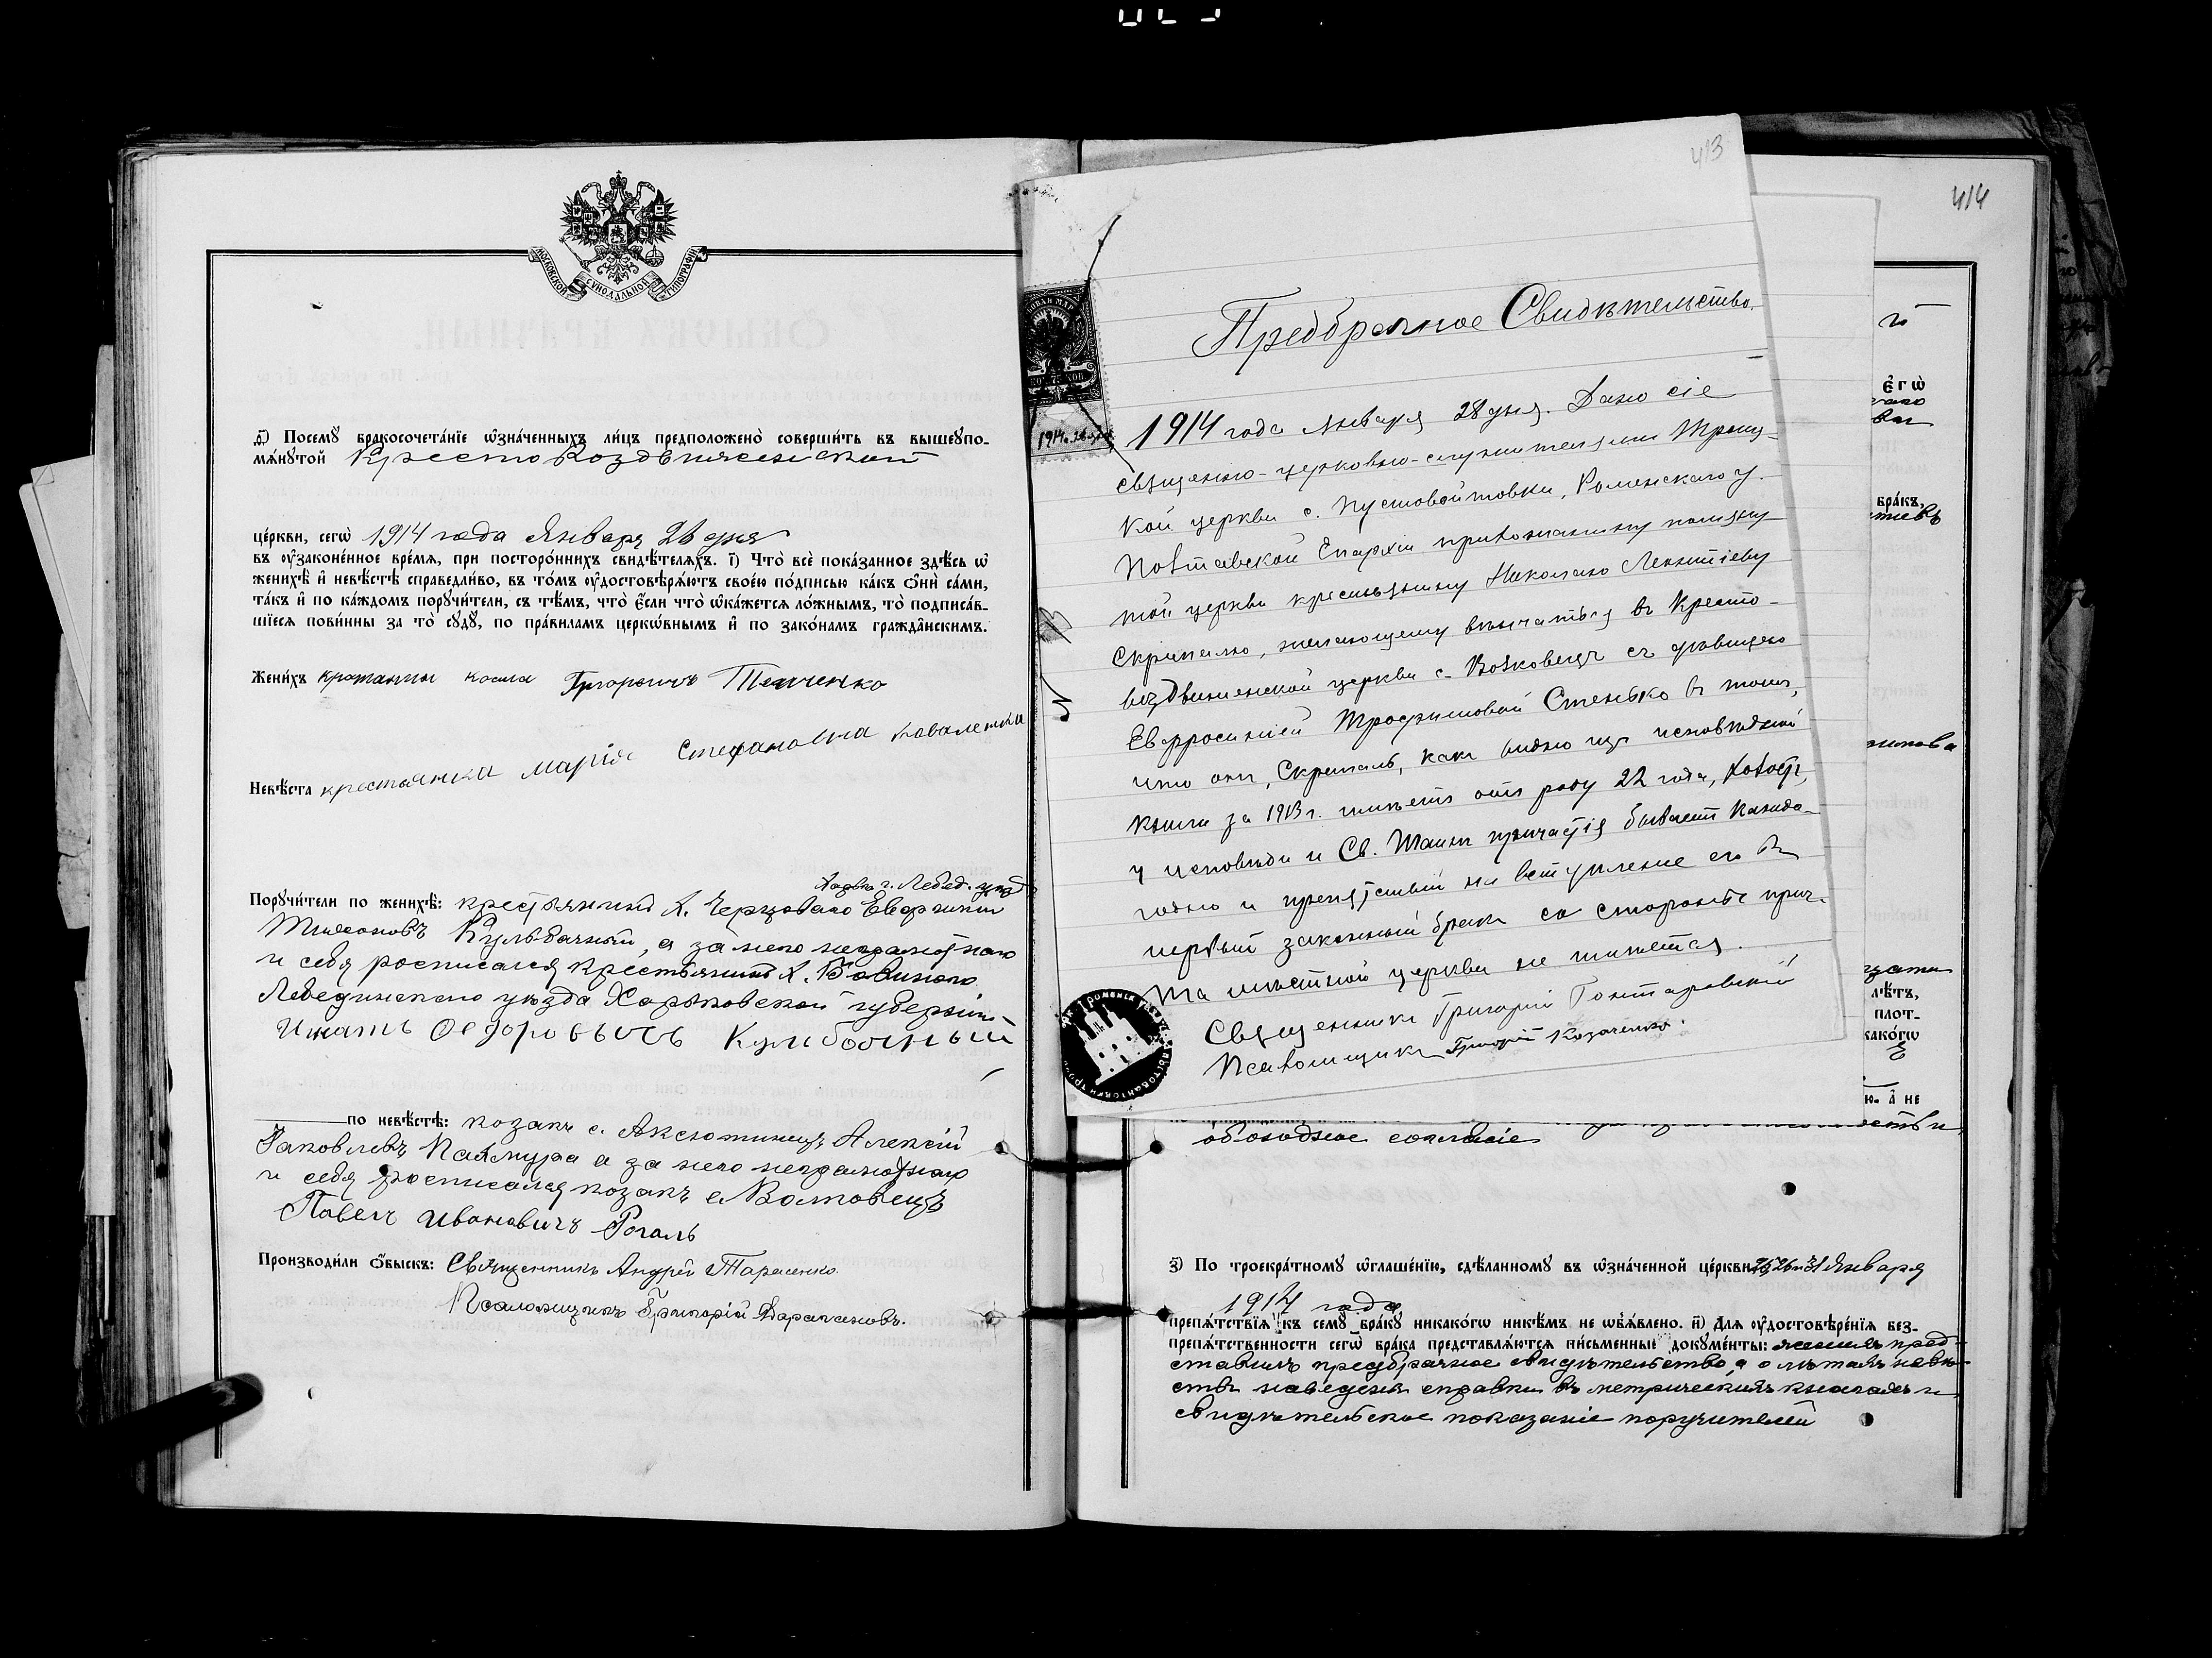 МОСКОВСКОЙ СѴНОДАЛЬНОЙ ТИПОГРАФІИ
Посемꙋ бракосочета́нїе ѡ҆зна́ченныхъ ли́цъ предположено̀ соверши́ть въ вышеꙋпо-
мѧ́нꙋтой Кресто Воздвиженской
це́ркви, сегѡ̀ 1914 года Января 26 дня
въ ᲂу҆законе́нное вре́мѧ, при посторо́ннихъ свидѣ́телѧхъ. і҃) Что̀ всѐ пока́занное здѣ́сь ѡ҆
женихѣ̀ и҆ невѣ́стѣ справедли́во, въ то́мъ ᲂу҆достовѣрѧ́ютъ свое́ю по́дписью ка́къ ѻ҆нѝ са́ми,
та́къ и҆ по ка́ждомъ порꙋчи́тели, съ тѣ́мъ, что̀ є҆́сли что̀ ѡ҆ка́жетсѧ ло́жнымъ, то̀ подписа́в-
шїесѧ пови́нны за то̀ сꙋдꙋ̀, по пра́виламъ церкѡ́внымъ и҆ по зако́намъ гражда̑нскимъ.
Жени́хъ Козма Григорьичъ Темченко
Невѣ́ста крестьянка Марія Стефановна Коваленкова
Харьк. г. Лебед. уѣзд
Порꙋчи́тели по женихѣ̀: крестьянинъ х. Черцоваго Евфимій
Тимоновъ Кульбачный, а за него неграмотнаго
и себя росписался крестьянинъ х. Бабинаго
Лебединскаго уѣзда Харьковской губерніи
Игнатъ Федоровичъ Кулбачный
по невѣ́стѣ: козакъ с. Аксютинецъ Алексій
Яковлевъ Паямура а за него неграмотнаго
и себя росписался козакъ с. Волковецъ
Павелъ Ивановичъ Рогаль
Производи́ли ѻ҆́быскъ: Священникъ Андрей Тарасенко.
Псаломщикъ Григорій Барабановъ.
413
Предбрачное Свидѣтельство.
75 КОП
1914 года Января 28 дня. Дано сіе
священно-церковно-служителями Троиц-
кой церкви с. Пустовойтовки, Роменскаго у.
Полтавской Епархіи прихожанину
той церкви крестьянину Николаю Леонтіеву
Скрипалю, желающему вѣнчаться въ Кресто-
воздвиженской церкви с. Волковецъ съ дѣвицею
Евфросиніей Трофимовой Стенько въ томъ,
что онъ, Скрипаль, какъ видно изъ исповѣдной
книги за 1913 г. имѣетъ отъ роду 22 года, холостъ,
у исповѣди и Св. Таинъ причастія бываетъ ежего-
годно и препятствій на вступленіе его въ
первый законный бракъ со стороны прич-
та мѣстной церкви не имѣется.
Священникъ Григорій Гонтаровскій
Псаломщикъ Григорій Козаченко.
414
є҆гѡ̀
бра́къ,
лѣ́тъ,
плот-
како́гѡ
а҆ не
обоюдное согласіе
з҃) По троекра́тномꙋ ѡ҆глаше́нїю, сдѣ́ланномꙋ въ ѡ҆зна́ченной це́ркви 26 и 31 Января
1914 года
препѧ́тствїѧ къ семꙋ̀ бра́кꙋ никако́гѡ никѣ́мъ не ѡ҆б̾ѧ́влено. и҃) Для ᲂу҆достовѣре́нїѧ без-
препѧ́тственности сегѡ̀ бра́ка представлѧ́ютсѧ пи́сьменные докꙋме́нты: женихъ пред-
ставилъ предбрачное свидѣтельство, а о лѣтахъ невѣ-
сты наведена справка въ метрическихъ книгахъ и
свидѣтельское показаніе поручителей